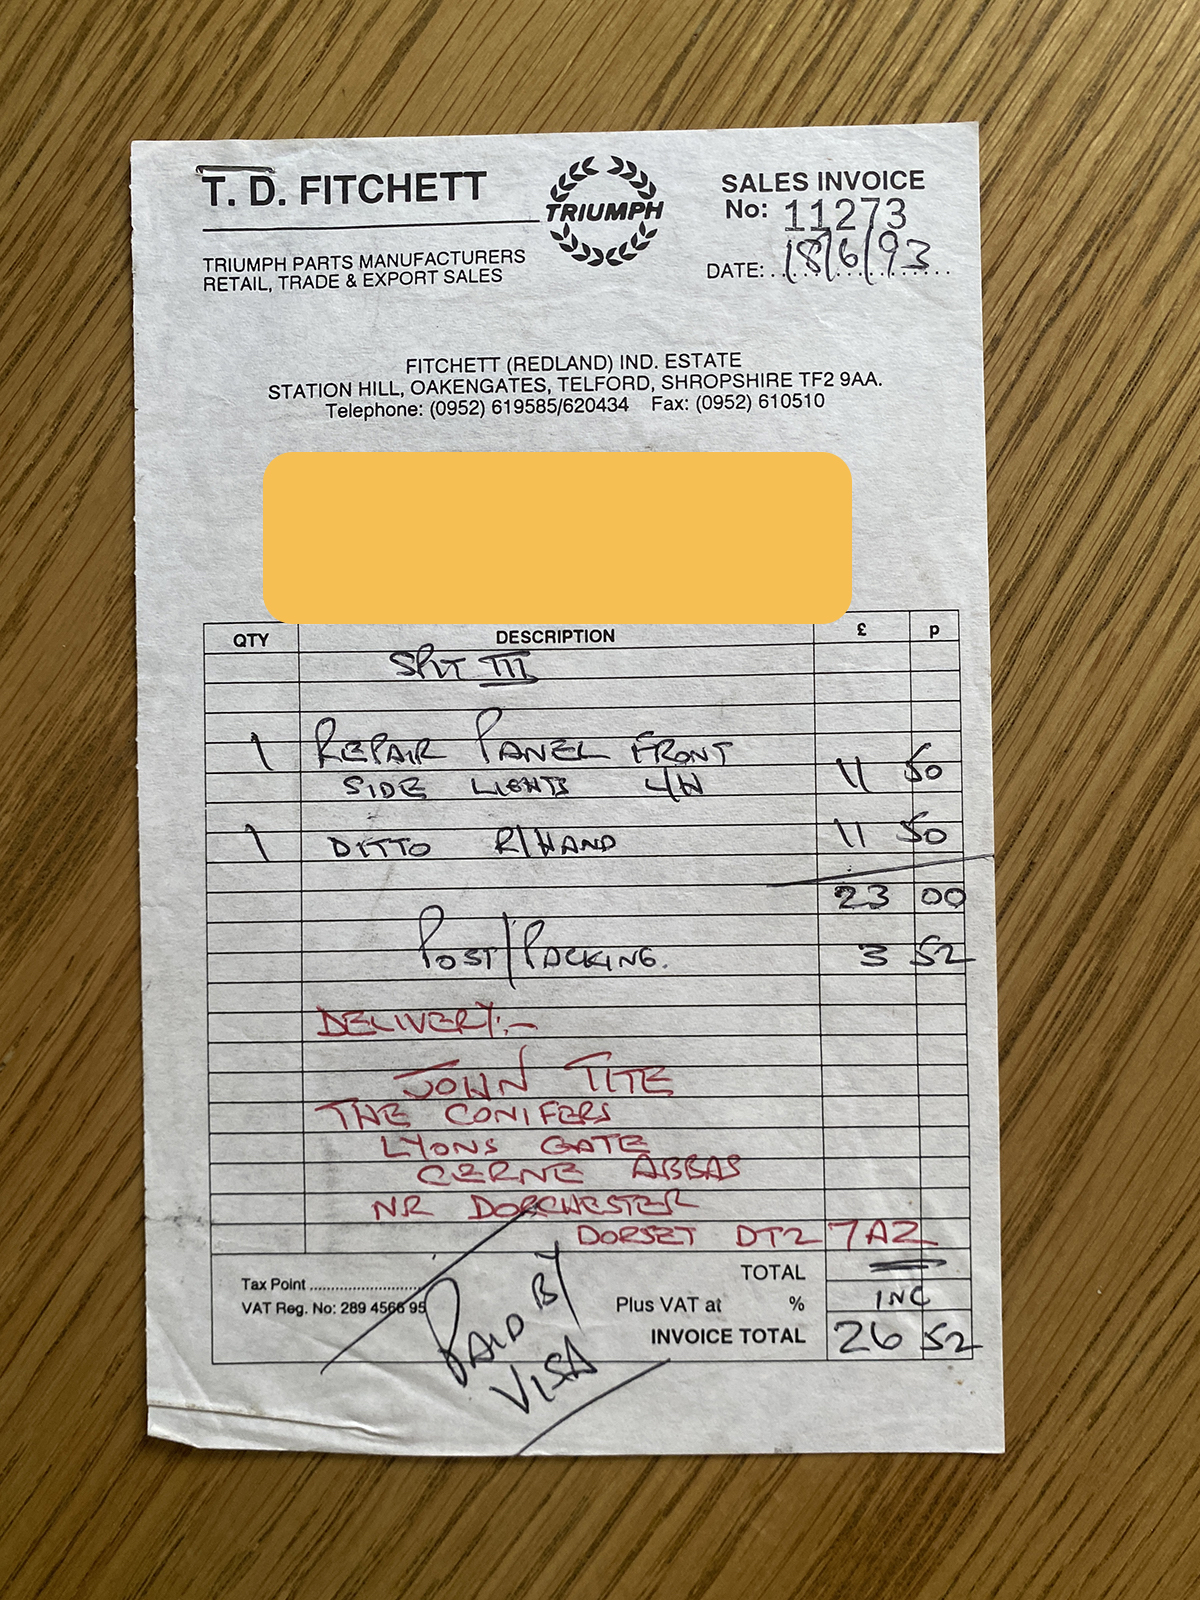 T. D. FITCHETT
TRIUMPH
SALES INVOICE
No: 11273
DATE: 18/6/93
TRIUMPH PARTS MANUFACTURERS
RETAIL, TRADE & EXPORT SALES
FITCHETT (REDLAND) IND. ESTATE
STATION HILL, OAKENGATES, TELFORD, SHROPSHIRE TF2 9AA.
Telephone: (0952) 619585/620434 Fax: (0952) 610510
QTY DESCRIPTION £ p
SPIT III
1 REPAIR PANEL FRONT
SIDE LIGHTS L/H 11 50
1 DITTO R/HAND 11 50
23 00
POST/PACKING. 3 52
DELIVERY:-
JOHN TITE
THE CONIFERS
LYONS GATE
CERNE ABBAS
NR DORCHESTER
DORSET DT2 7AZ
TOTAL
Tax Point ..........................
VAT Reg. No: 289 4566 95
Plus VAT at % INC
INVOICE TOTAL 26 52
PAID BY
VISA